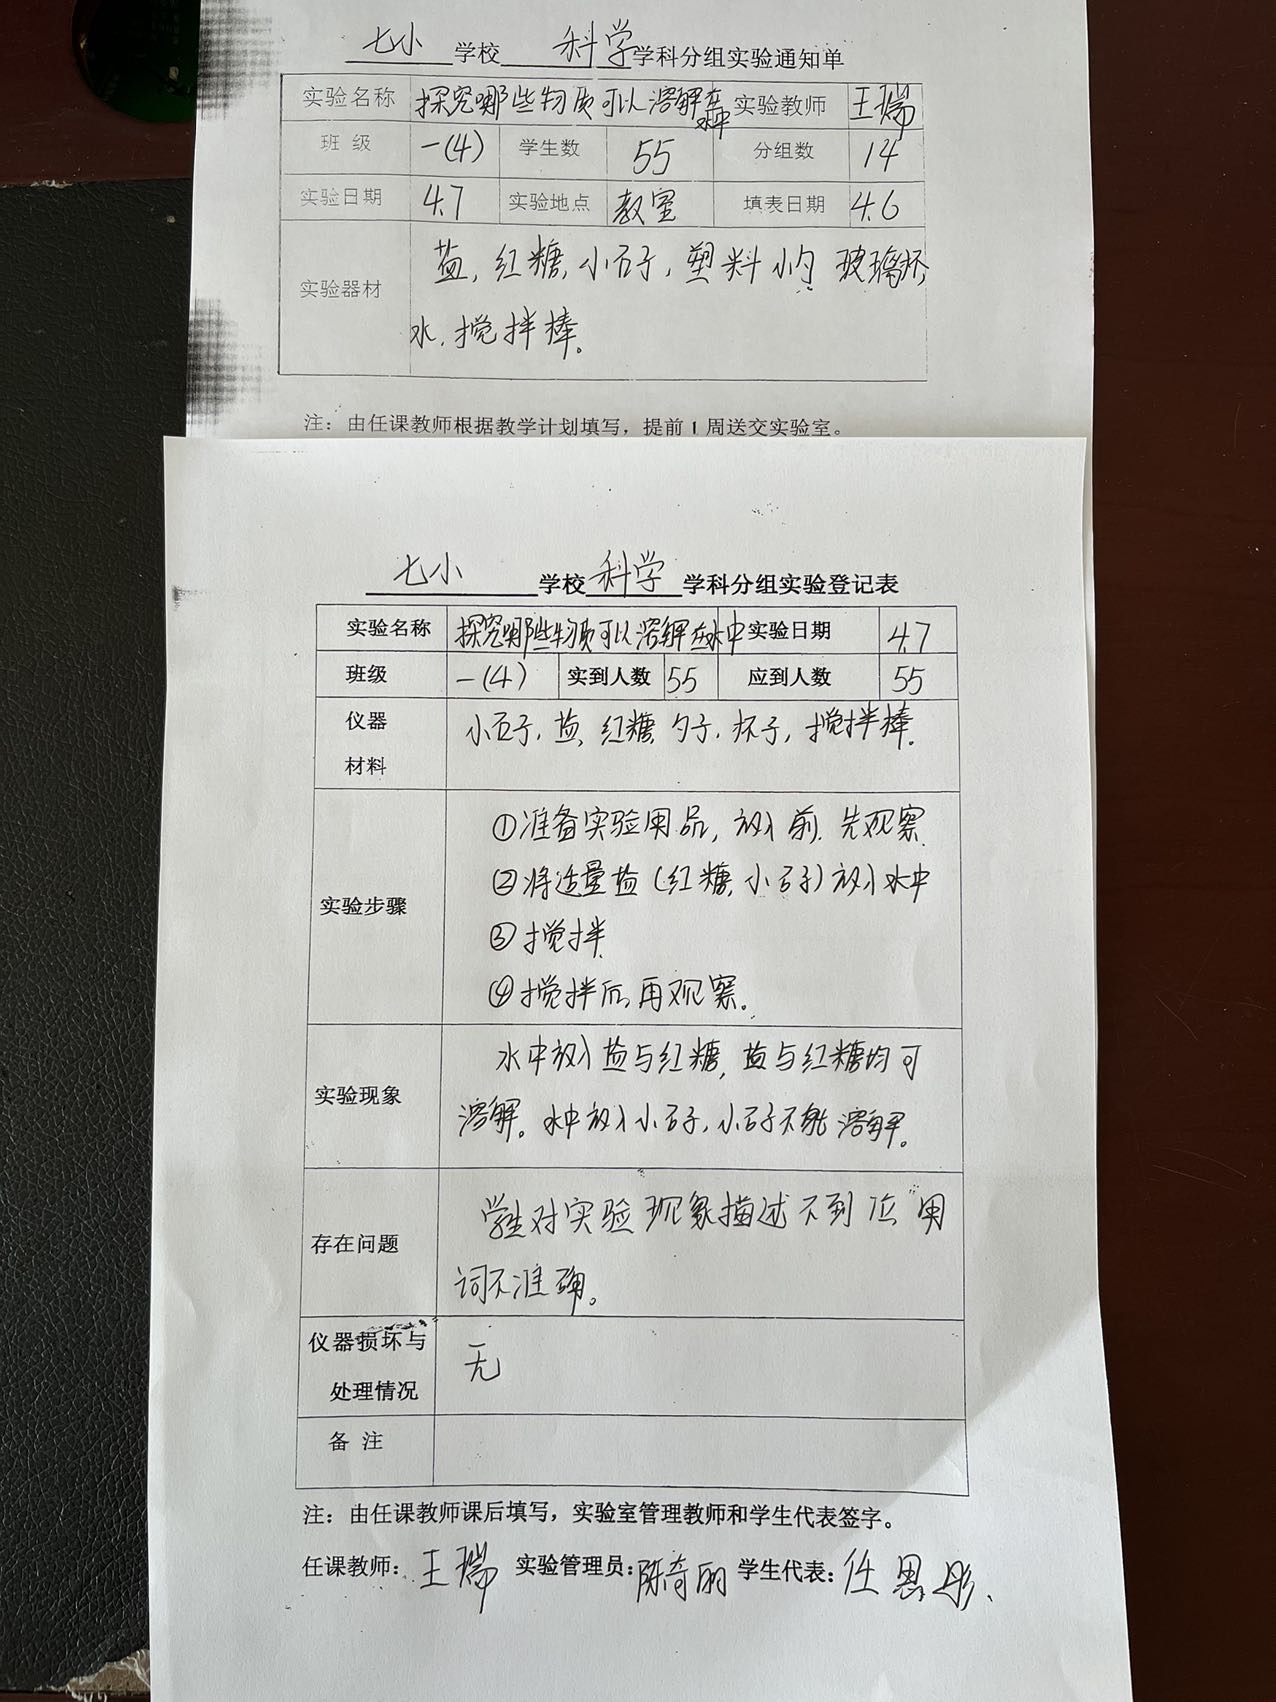 七小 学校 科学 学科分组实验通知单
实验名称 探究哪些物质可以溶解在水中 实验教师 王瑞
班 级 一(4) 学生数 55 分组数 14
实验日期 4.7 实验地点 教室 填表日期 4.6
实验器材 盐,红糖,小石子,塑料小勺,玻璃杯,
水,搅拌棒。
注：由任课教师根据教学计划填写，提前1周送交实验室。
七小 学校 科学 学科分组实验登记表
实验名称 探究哪些物质可以溶解在水中 实验日期 4.7
班级 一(4) 实到人数 55 应到人数 55
仪器 小石子,盐,红糖,勺子,杯子,搅拌棒.
材料
①准备实验用品,放入前.先观察.
②将适量盐(红糖,小石子)放入水中
实验步骤
③搅拌
④搅拌后,再观察。
水中放入盐与红糖,盐与红糖均可
实验现象
溶解。水中放入小石子,小石子不能溶解。
学生对实验现象描述不到位,用
存在问题
词不准确。
仪器损坏与
无
处理情况
备 注
注：由任课教师课后填写，实验室管理教师和学生代表签字。
任课教师：王瑞 实验管理员：陈奇丽 学生代表：任思彤